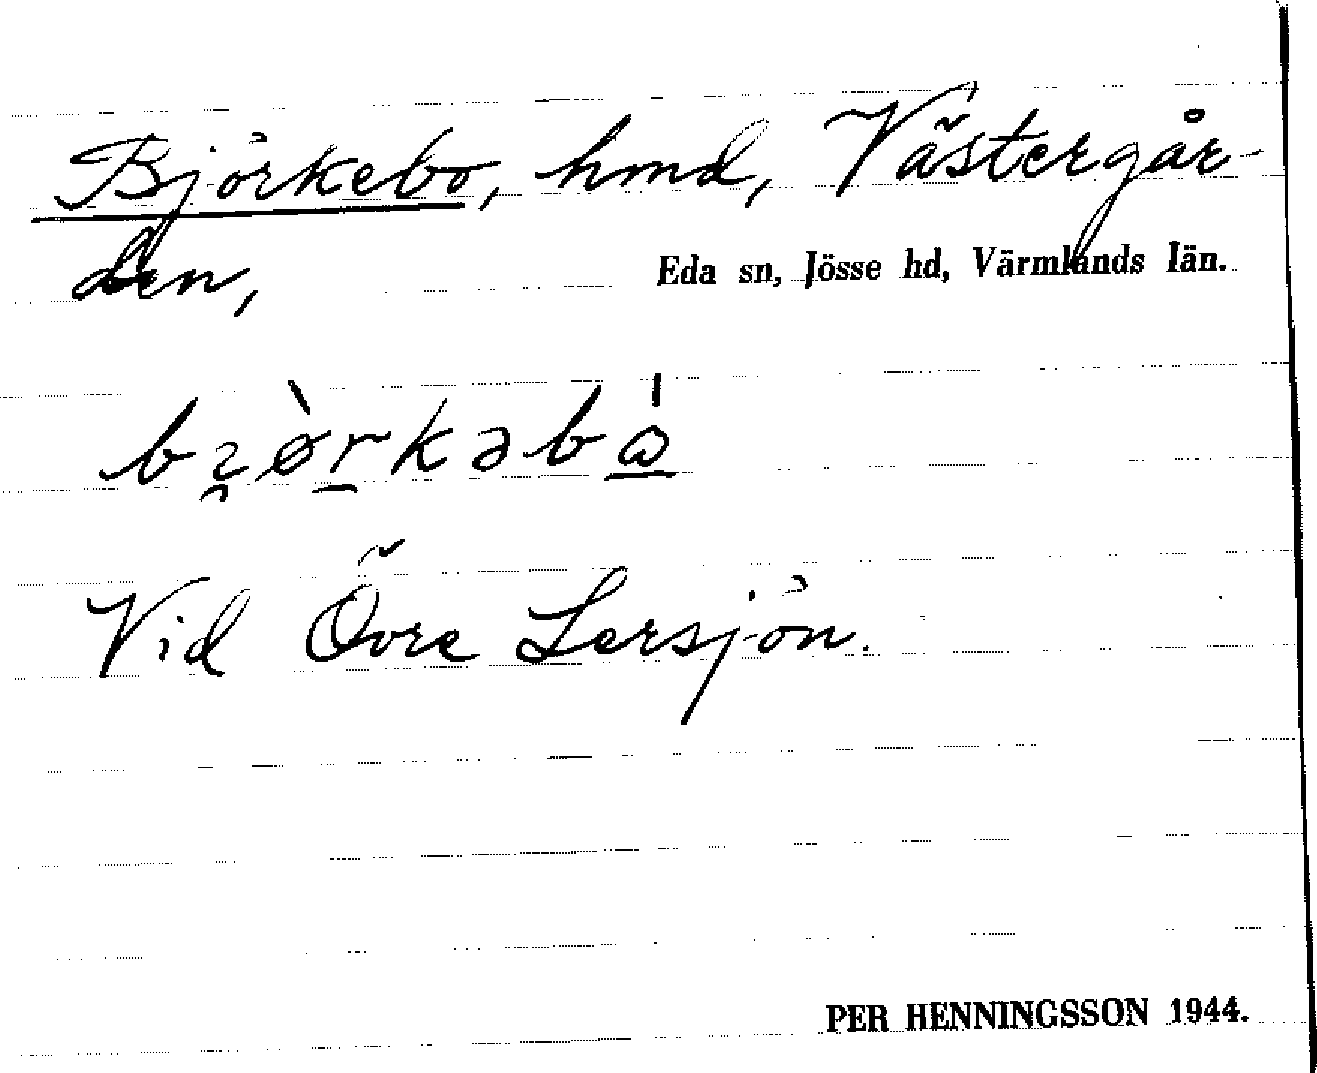 Björkebo, hmd, Västergår-
den,
Eda sn, Jösse hd, Värmlands län.
bʒø̀rkəbɷ́
Vid Övre Lersjön.
PER HENNINGSSON 1944.